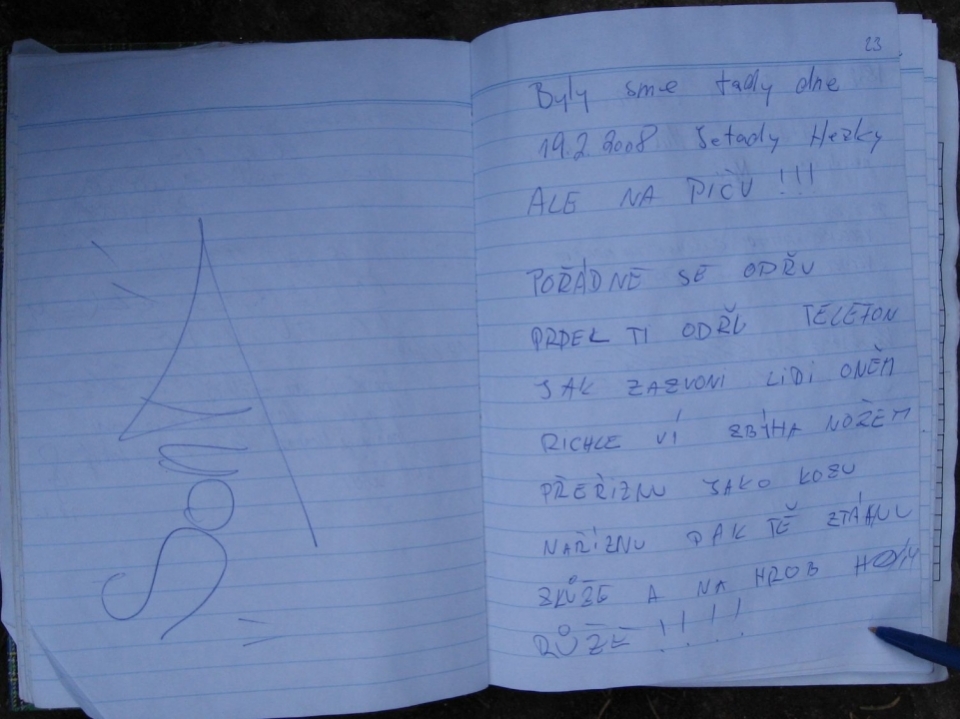 23
Byly sme tady dne
19.2.2008 Jetady Hezky
ALE NA PIČU !!!
POŘÁDNĚ SE ODŘU
PRDEL TI ODŘU TELEFON
JAK ZAZVONI LIDI ONĚM
RICHLE VÍ ZBÍHA NOŽEM
PŘEŘIZNU JAKO KOZU
NAŘÍZNU PAK TĚ ZTÁHU
ZKŮŽE A NA HROB HODÍM
RŮŽE !!!!